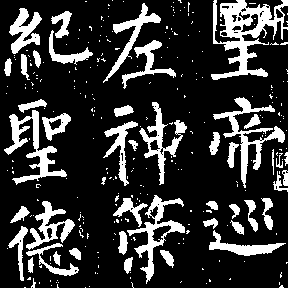 皇帝巡
左神策
紀聖德